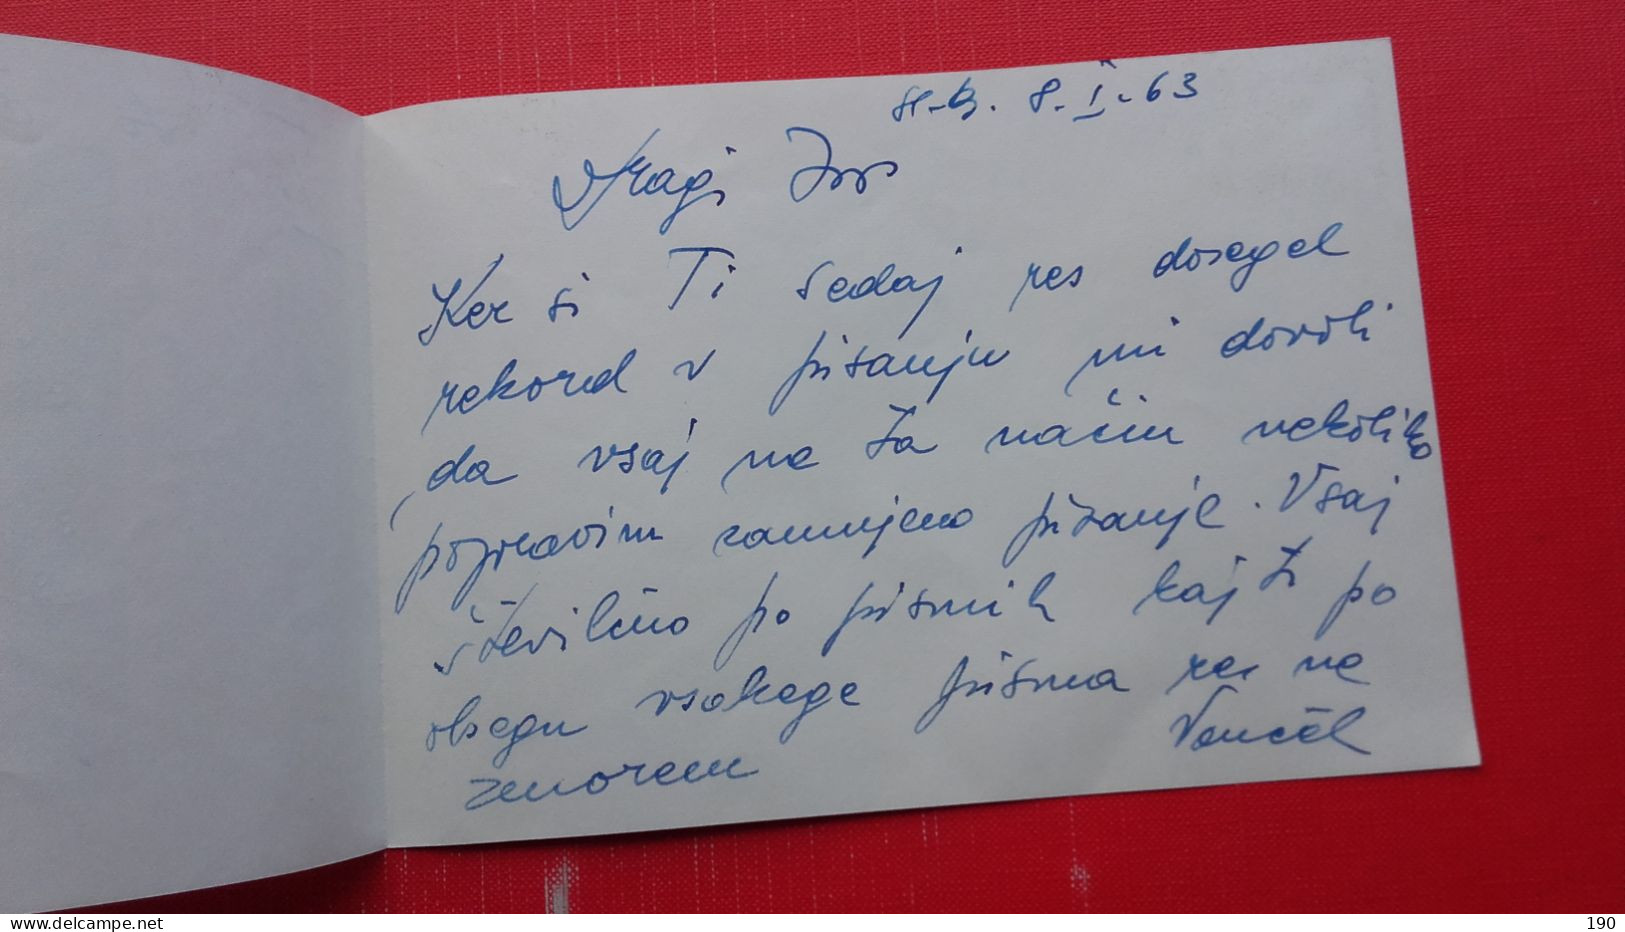 8. I. 63
Dragi
Ker si Ti sedaj res dosegel
rekord v pisanju mi dovoli
, da vsaj na ta način nekoliko
popravim zamujeno pisanje. Vsaj
številčno po pismih kajti po
obsegu vsakega pisma res ne
zmorem
delcampe.net
190